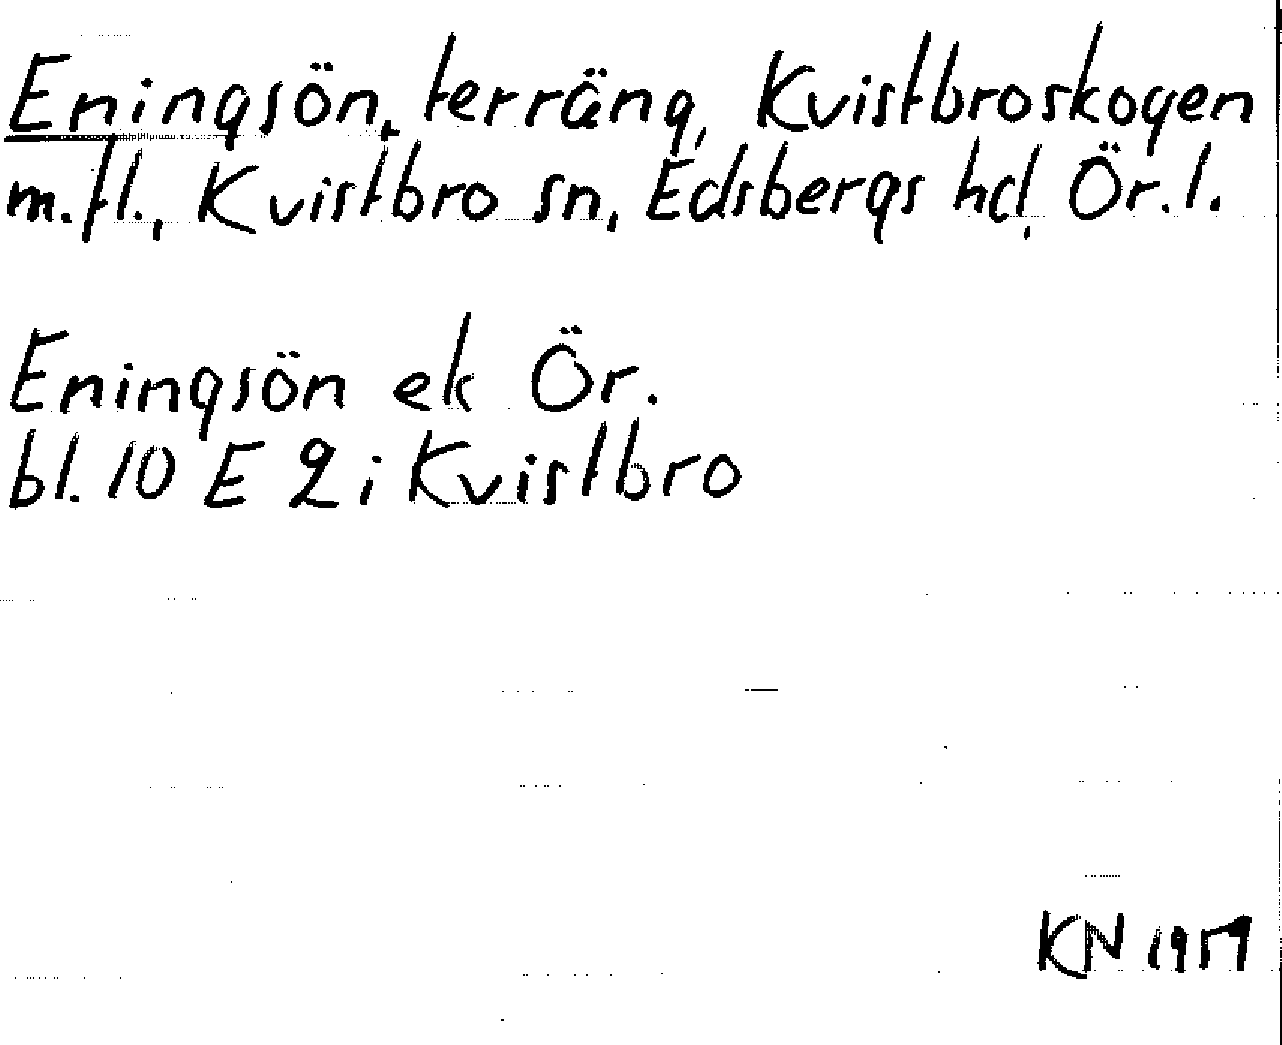 Eningsön, terräng, Kvistbroskogen
m.fl., Kvistbro sn, Edsbergs hd, Ör.l.
Eningsön ek Ör.
bl. 10 E 2 i Kvistbro
KN